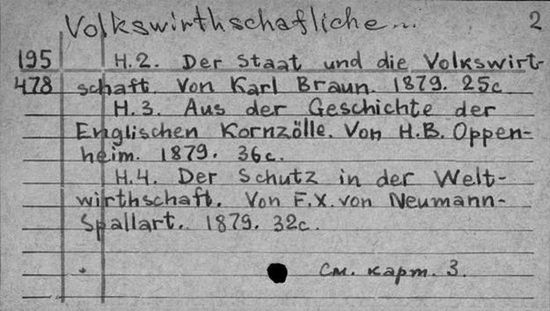 Volkswirthschafliche... 2
195 H.2. Der Staat und die Volkswirt-
478 schaft. Von Karl Braun. 1879. 25c.
H.3. Aus der Geschichte der
Englischen Kornzölle. Von H.B. Oppen-
heim. 1879. 36c.
H.4. Der Schutz in der Welt-
wirthschaft. Von F.X. von Neumann-
Spallart. 1879. 32c.
См. карт. 3.